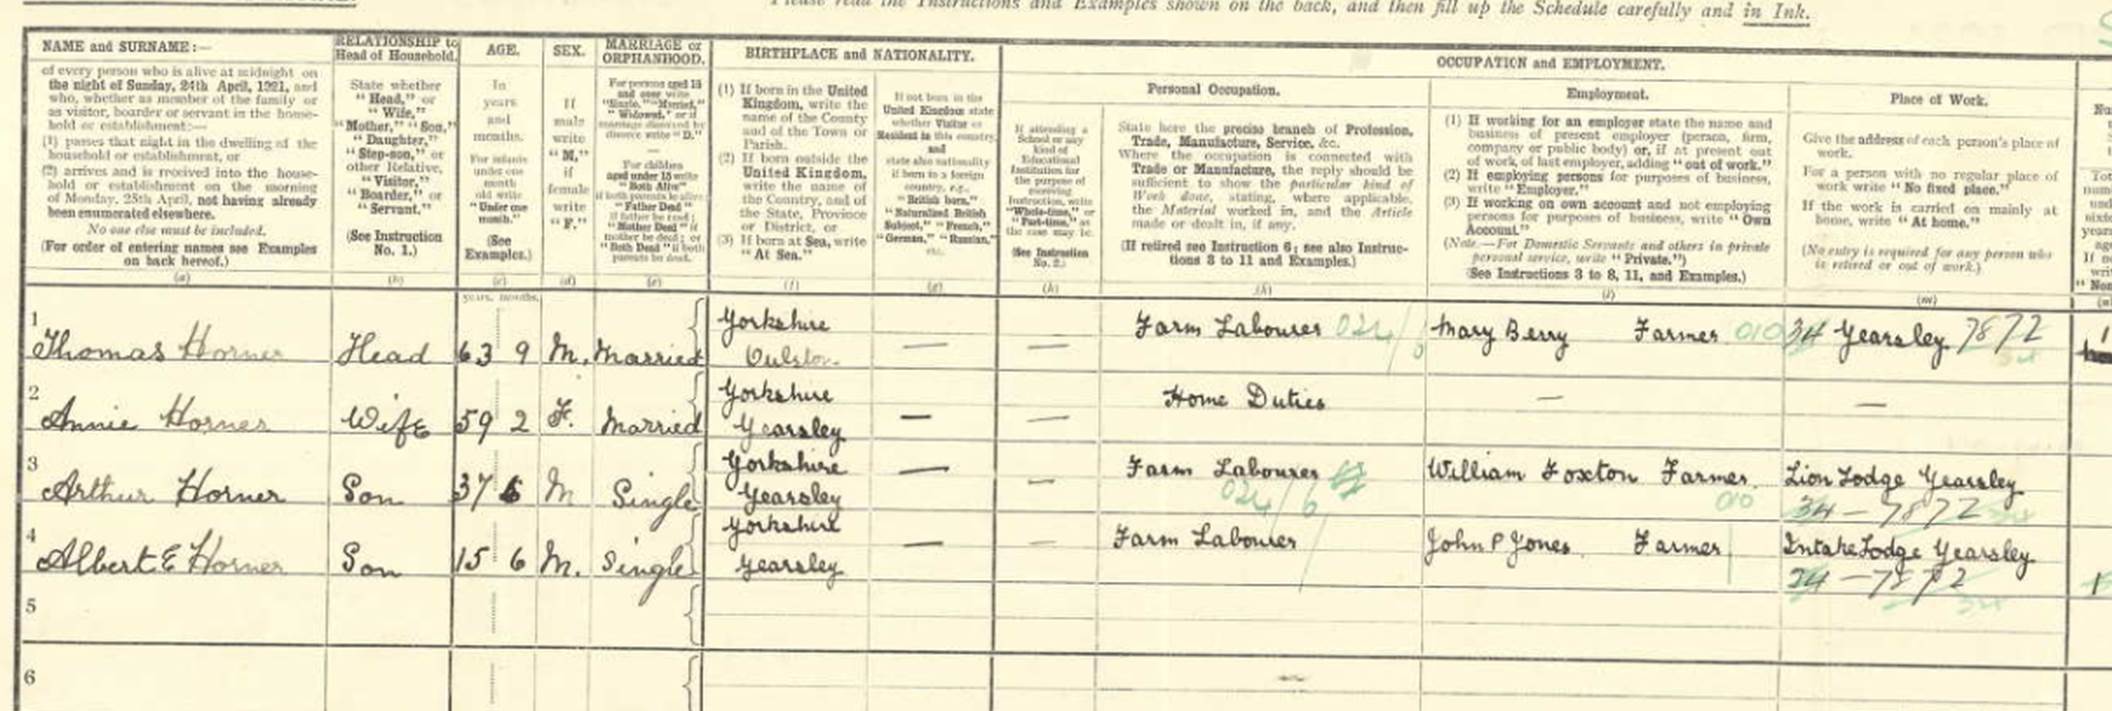 Please read the Instructions and Examples shown on the back, and then fill up the Schedule carefully and in Ink.
NAME and SURNAME:—
of every person who is alive at midnight on
the night of Sunday, 24th April, 1921, and
who, whether as member of the family or
as visitor, boarder or servant in the house-
hold or establishment:—
(1) passes that night in the dwelling of the
household or establishment, or
(2) arrives and is received into the house-
hold or establishment on the morning
of Monday, 25th April, not having already
been enumerated elsewhere.
No one else must be included.
(For order of entering names see Examples
on back hereof.)
(a)
RELATIONSHIP to
Head of Household.
State whether
"Head," or
"Wife,"
"Mother," "Son,"
"Daughter,"
"Step-son," or
other Relative,
"Visitor,"
"Boarder," or
"Servant."
(See Instruction
No. 1.)
(b)
AGE.
In
years
and
months.
For infants
under one
month
old write
"Under one
month."
(See
Examples.)
(c)
SEX.
If
male
write
"M,"
if
female
write
"F."
(d)
MARRIAGE or
ORPHANHOOD.
For persons aged 15
and over write
"Single," "Married,"
"Widowed," or if
marriage dissolved by
divorce write "D."
For children
aged under 15 write
"Both Alive"
if both parents be alive;
"Father Dead"
if father be dead;
"Mother Dead" if
mother be dead; or
"Both Dead" if both
parents be dead.
(e)
BIRTHPLACE and NATIONALITY.
(1) If born in the United
Kingdom, write the
name of the County
and of the Town or
Parish.
(2) If born outside the
United Kingdom,
write the name of
the Country, and of
the State, Province
or District, or
(3) If born at Sea, write
"At Sea."
(f)
If not born in the
United Kingdom state
whether Visitor or
Resident in this country,
and
state also nationality
if born in a foreign
country, e.g.,
"British born,"
"Naturalized British
Subject," "French,"
"German," "Russian,"
etc.
(g)
OCCUPATION and EMPLOYMENT.
If attending a
School or any
kind of
Educational
Institution for
the purpose of
receiving
Instruction, write
"Whole-time," or
"Part-time," as
the case may be.
(See Instruction
No. 2.)
(h)
Personal Occupation.
State here the precise branch of Profession,
Trade, Manufacture, Service, &c.
Where the occupation is connected with
Trade or Manufacture, the reply should be
sufficient to show the particular kind of
Work done, stating, where applicable,
the Material worked in, and the Article
made or dealt in, if any.
(If retired see Instruction 6; see also Instruc-
tions 3 to 11 and Examples.)
(k)
Employment.
(1) If working for an employer state the name and
business of present employer (person, firm,
company or public body) or, if at present out
of work, of last employer, adding "out of work."
(2) If employing persons for purposes of business,
write "Employer."
(3) If working on own account and not employing
persons for purposes of business, write "Own
Account."
(Note.—For Domestic Servants and others in private
personal service, write "Private.")
(See Instructions 3 to 8, 11, and Examples.)
(l)
Place of Work.
Give the address of each person's place of
work.
For a person with no regular place of
work write "No fixed place."
If the work is carried on mainly at
home, write "At home."
(No entry is required for any person who
is retired or out of work.)
(m)
years. months.
1 Thomas Horner Head 63 9 M. Married Yorkshire Oulston — — Farm Labourer 024/ Mary Berry Farmer 010 34 Yearsley 7872
2 Annie Horner Wife 59 2 F. Married Yorkshire Yearsley — — Home Duties — —
3 Arthur Horner Son 37 6 M Single Yorkshire Yearsley — — Farm Labourer 024/6 William Foxton Farmer 010 Lion Lodge Yearsley 34 – 7872
4 Albert E Horner Son 15 6 M. Single Yorkshire Yearsley — — Farm Labourer John P Jones Farmer Intake Lodge Yearsley 34 – 7872
5
6